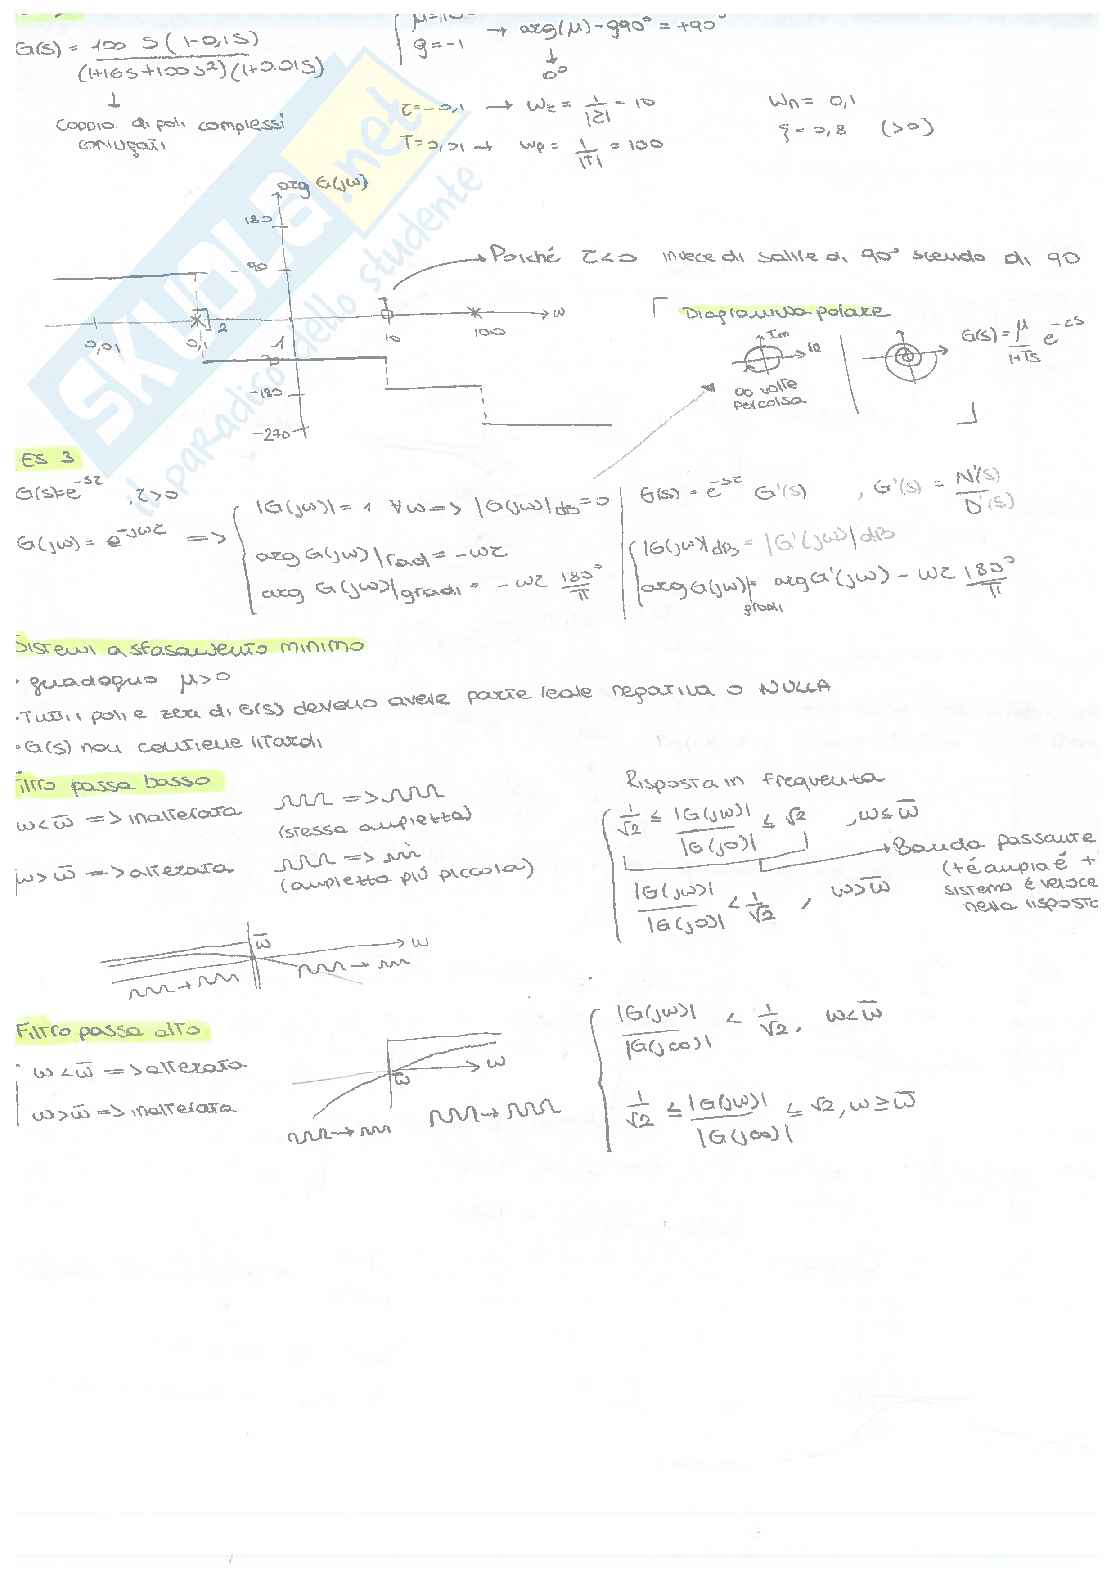 G(s) = 100 s(1-0,1s) / (1+16s+100s²)(1+0.01s)
g=-1
→ arg(μ)-g90° = +90°
↓
0°
↓
Coppia di poli complessi
coniugati
τ=-0,1 → Wz = 1/|τ| = 10
T=0,01 → Wp = 1/|T| = 100
Wn = 0,1
ξ=0,8 (>0)
arg G(jω)
180
90
Poiché τ<0 invece di salire di 90° scendo di 90
0,01 0,1 2 1 10 100 ω
-180
-270
Diagramma polare
Im
∞ volte
percorsa
G(s)= μ/1+Ts e^-τs
ES 3
G(s)=e^-sτ , τ>0
G(jω) = e^-jωτ =>
|G(jω)| = 1 ∀ω => |G(jω)|dB=0
arg G(jω)|rad = -ωτ
arg G(jω)|gradi = -ωτ 180°/π
G(s) = e^-sτ G'(s) , G'(s) = N'(s)/D'(s)
|G(jω)|dB = |G'(jω)|dB
arg G(jω)|gradi = arg G'(jω) - ωτ 180°/π
Sistemi a sfasamento minimo
· guadagno μ>0
· Tutti i poli e zeri di G(s) devono avere parte reale negativa o NULLA
· G(s) non contiene ritardi
Filtro passa basso
ω<ω̅ => inalterata
=>
(stessa ampiezza)
ω>ω̅ => alterata
=>
(ampiezza più piccola)
ω̅ ω
Risposta in frequenza
1/√2 ≤ |G(jω)|/|G(j0)| ≤ √2 , ω≤ω̅
Banda passante
(+ è ampia è +
sistema è veloce
nella risposta
|G(jω)|/|G(j0)| < 1/√2 , ω>ω̅
Filtro passa alto
· ω<ω̅ => alterata
ω>ω̅ => inalterata
ω
ω̅
|G(jω)|/|G(j∞)| < 1/√2, ω<ω̅
1/√2 ≤ |G(jω)|/|G(j∞)| ≤ √2, ω≥ω̅
SKUOLA.net
il paradiso dello studente